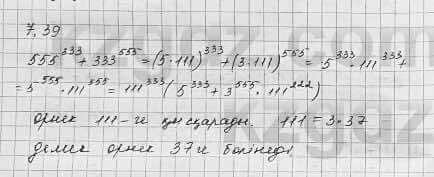 7,39
555^333 + 333^555 = (5·111)^333 + (3·111)^555 = 5^333 · 111^333 +
= 3^555 · 111^555 = 111^333 ( 5^333 + 3^555 · 111^222 )
орнек 111-ге қысқарады. 111 = 3·37
демек орнек 37ге бөлінеді